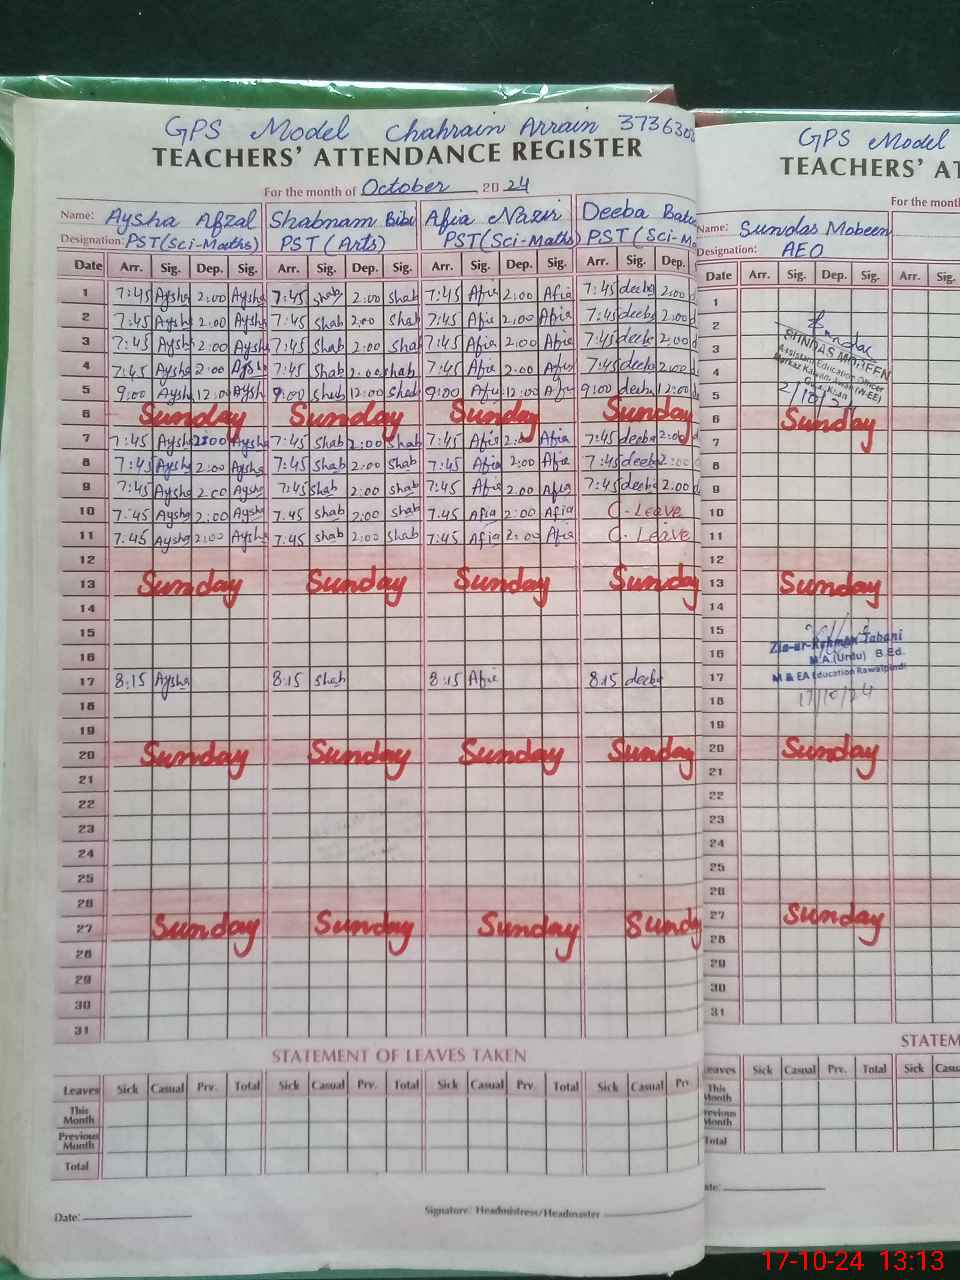 GPS Model Chahrain Arrain
TEACHERS' ATTENDANCE REGISTER
For the month of October 2024
Name: Aysha Afzal Shabnam Bibi Afia Nazir Deeba
Designation: PST(Sci-Maths) PST (Arts) PST(Sci-Maths) PST(Sci-
Date Arr. Sig. Dep. Sig. Arr. Sig. Dep. Sig. Arr. Sig. Dep. Sig. Arr. Sig. Dep.
1 7:45 Aysha 2:00 Aysha 7:45 Shab 2:00 Shab 7:45 Afia 2:00 Afia 7:45 deeba 2:00
2 7:45 Aysha 2:00 Aysha 7:45 Shab 2:00 Shab 7:45 Afia 2:00 Afia 7:45 deeba 2:00
3 7:45 Aysha 2:00 Aysha 7:45 Shab 2:00 Shab 7:45 Afia 2:00 Afia 7:45 deeba 2:00
4 7:45 Aysha 2:00 Aysha 7:45 Shab 2:00 Shab 7:45 Afia 2:00 Afia 7:45 deeba 2:00
5 9:00 Aysha 12:00 Aysha 9:00 Shab 12:00 Shab 9:00 Afia 12:00 Afia 9:00 deeba 12:00
6 Sunday Sunday Sunday Sunday
7 7:45 Aysha 2:00 Aysha 7:45 Shab 2:00 Shab 7:45 Afia 2:00 Afia 7:45 deeba 2:00
8 7:45 Aysha 2:00 Aysha 7:45 Shab 2:00 Shab 7:45 Afia 2:00 Afia 7:45 deeba 2:00
9 7:45 Aysha 2:00 Aysha 7:45 Shab 2:00 Shab 7:45 Afia 2:00 Afia 7:45 deeba 2:00
10 7:45 Aysha 2:00 Aysha 7:45 Shab 2:00 Shab 7:45 Afia 2:00 Afia C-Leave
11 7:45 Aysha 2:00 Aysha 7:45 Shab 2:00 Shab 7:45 Afia 2:00 Afia C-Leave
12
13 Sunday Sunday Sunday Sunday
14
15
16
17 8:15 Aysha 8:15 Shab 8:15 Afia 8:15 deeba
18
19
20 Sunday Sunday Sunday Sunday
21
22
23
24
25
26
27 Sunday Sunday Sunday Sunday
28
29
30
31
STATEMENT OF LEAVES TAKEN
Leaves Sick Casual Prv. Total Sick Casual Prv. Total Sick Casual Prv. Total Sick Casual Prv
This Month
Previous Month
Total
Date:
Signature: Headmistress/Headmaster
GPS Model
TEACHERS' AT
For the month
Name: Sundas Mobeen
Designation: AEO
Date Arr. Sig. Dep. Sig. Arr. Sig.
1
2
3
4
5
SUNDAS MOBEEN
Assistant Education Officer
2/10/24
6 Sunday
7
8
9
10
11
12
13 Sunday
14
15
16
17
Zia-ur-Rehman Tabani
M.A.(Urdu) B.Ed.
M & EA Education Rawalpindi
17/10/24
18
19
20 Sunday
21
22
23
24
25
26
27 Sunday
28
29
30
31
STATEM
Leaves Sick Casual Prv. Total Sick
This Month
Previous Month
Total
17-10-24 13:13